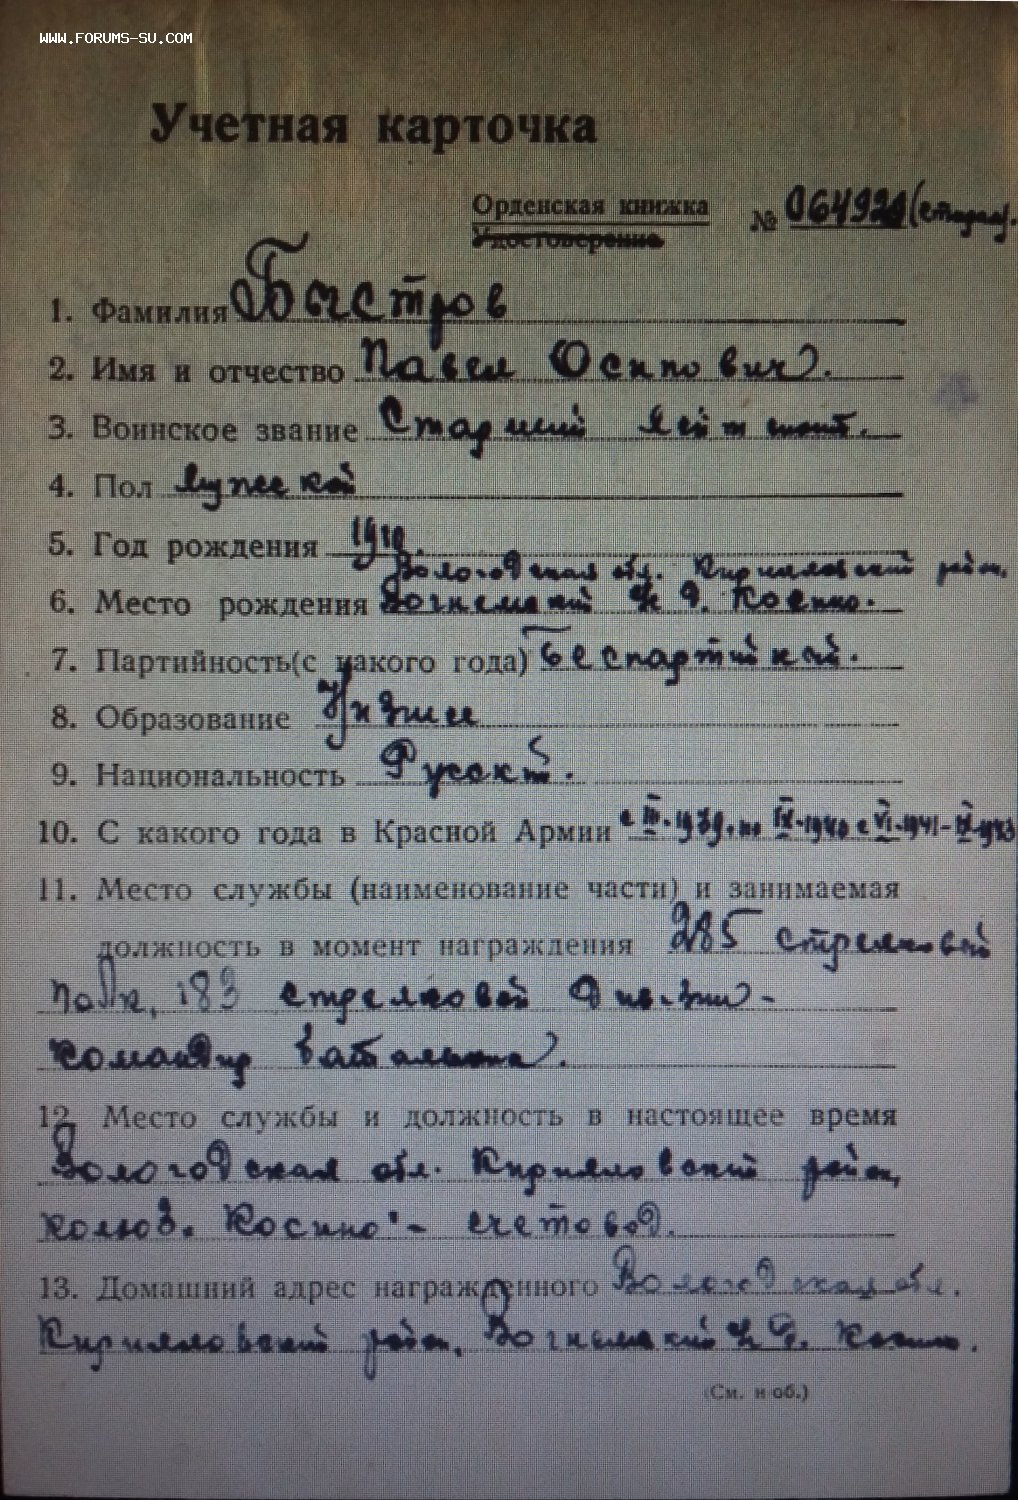 WWW.FORUMS-SU.COM
Учетная карточка
Орденская книжка № 064920 (старая).
Удостоверение
1. Фамилия Быстров
2. Имя и отчество Павел Осипович.
3. Воинское звание Старший лейтенант.
4. Пол Мужской
5. Год рождения 1910.
Вологодская обл. Кирилловский район,
6. Место рождения Вогнемский с/с д. Косино.
7. Партийность (с какого года) Беспартийный.
8. Образование Низшее
9. Национальность Русский.
10. С какого года в Красной Армии с 1939. по IX-1940 с VI-1941-IX-1943
11. Место службы (наименование части) и занимаемая
должность в момент награждения 285 стрелковый
полк, 183 стрелковой дивизии-
командир батальона.
12. Место службы и должность в настоящее время
Вологодская обл. Кирилловский район,
колхоз. Косино - счетовод.
13. Домашний адрес награжденного Вологодская обл.
Кирилловский район, Вогнемский с/с д. Косино.
(См. н об.)